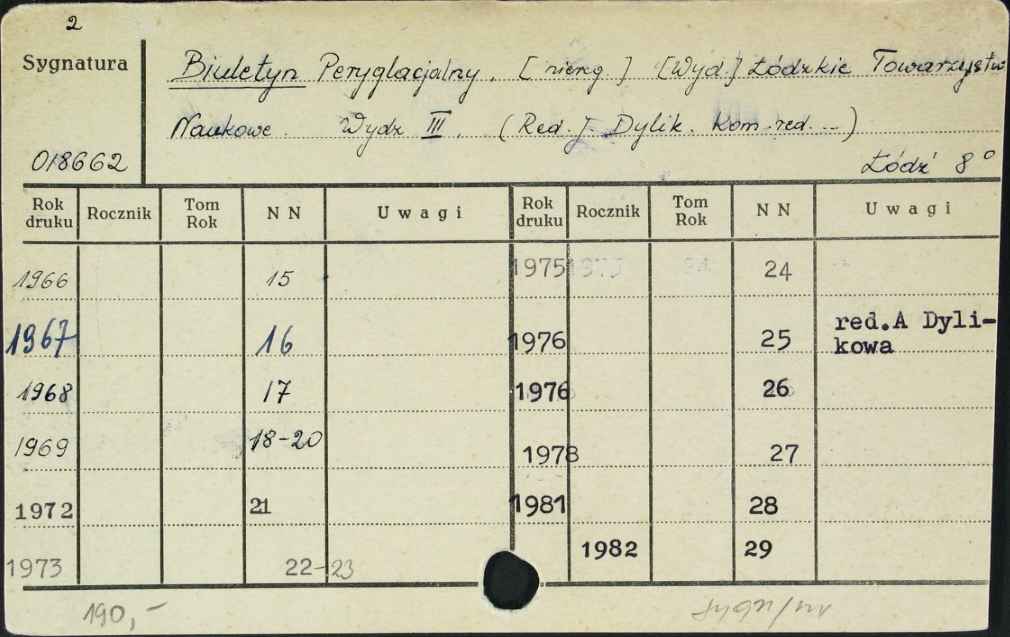 2
Sygnatura
Biuletyn Peryglacjalny. [niereg.] [Wyd.] Łódzkie Towarzystwo
Naukowe. Wydz III. (Red. J. Dylik. Kom. red. ...)
018662
Łódź 8°
Rok druku Rocznik Tom Rok NN Uwagi Rok druku Rocznik Tom Rok NN Uwagi
1966 15 1975 1975 24 24
1967 16 1976 25 red.A Dyli-
kowa
1968 17 1976 26
1969 18-20 1978 27
1972 21 1981 28
1982 29
1973 22-23
190,-